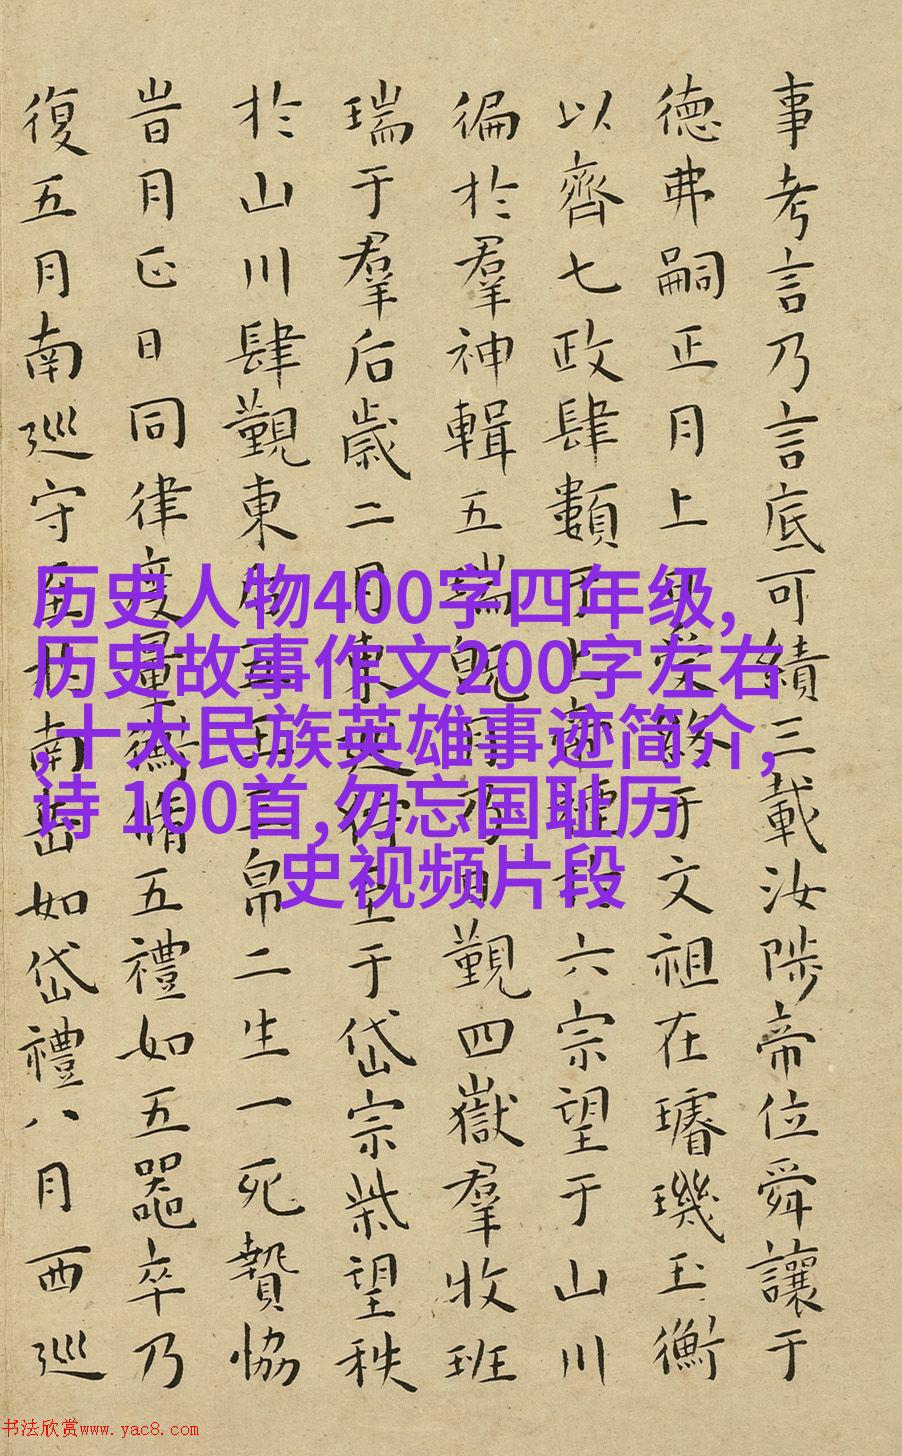 事考言乃言底可績三載汝陟帝位舜讓于
德弗嗣正月上日受終于文祖在璿璣玉衡
以齊七政肆類于上帝禋于六宗望于山川
徧於羣神輯五瑞既月乃日覲四嶽羣牧班
瑞于羣后歲二月東巡狩至于岱宗柴望秩
於山川肆覲東后五玉三帛二生一死贄協
旹月正日同律度量衡脩五禮如五器卒乃
復五月南巡守至于南岳如岱禮八月西巡
历史人物400字四年级,
历史故事作文200字左右
,十大民族英雄事迹简介,
诗 100首,勿忘国耻历
史视频片段
书法欣赏www.yac8.com